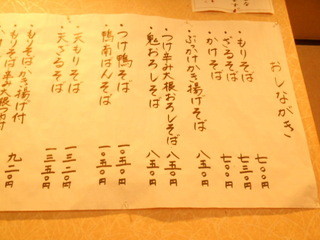 おしながき
・もりそば 七〇〇円
・ざるそば 七三〇円
・かけそば 七〇〇円
・ぶっかけかき揚げそば 八五〇円
・つけ辛み大根おろしそば 八五〇円
・魁おろしそば 八五〇円
・つけ鴨そば 一〇五〇円
・鴨南ばんそば 一〇五〇円
・天もりそば 一三二〇円
・天ざるそば 一三五〇円
・もりそばかき揚げ付
・もりそば辛み大根つゆ付 九二〇円